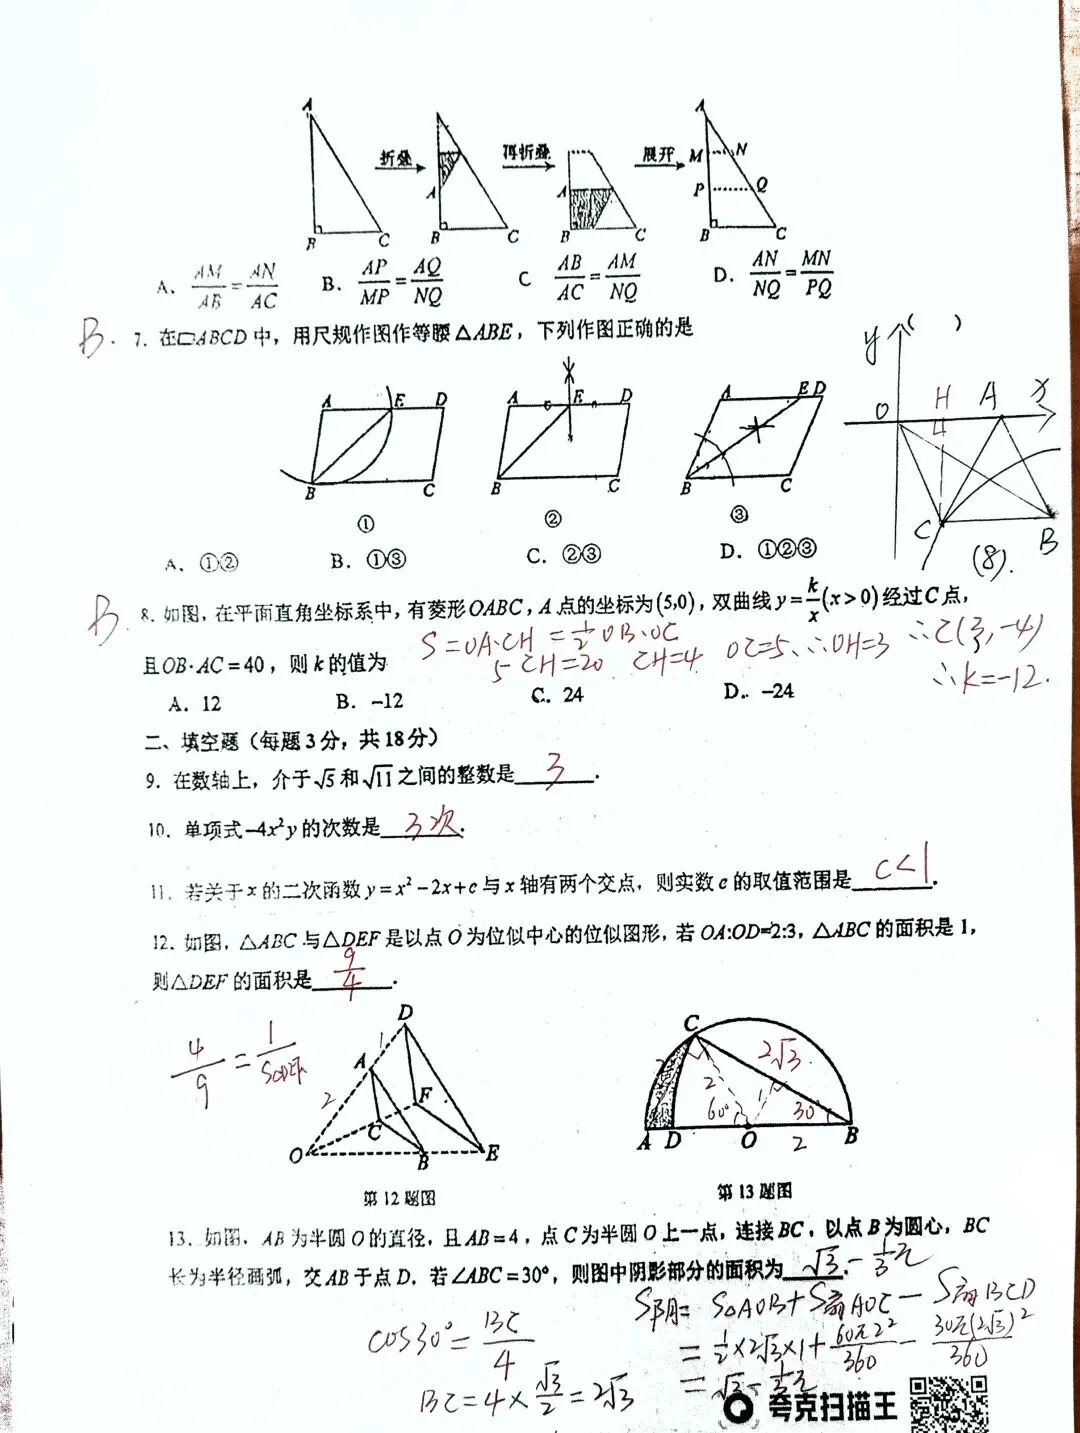 A
B
C
折叠
A
B
C
再折叠
A
B
C
展开
A
M
N
P
Q
B
C
A. AM/AB = AN/AC B. AP/MP = AQ/NQ C AB/AC = AM/NQ D. AN/NQ = MN/PQ
B. 7. 在▱ABCD中，用尺规作图作等腰△ABE，下列作图正确的是 ( )
A E D
B C
①
A E D
B C
②
A E D
B C
③
y
O H A x
4
C B
(8).
A. ①② B. ①③ C. ②③ D. ①②③
B. 8. 如图，在平面直角坐标系中，有菱形OABC，A点的坐标为(5,0)，双曲线y=k/x(x>0)经过C点，
S=OA·CH=½OB·OC
∴C(3,-4)
且OB·AC=40，则k的值为
5CH=20 CH=4 OC=5,∴OH=3
∴k=-12.
A. 12 B. -12 C. 24 D. -24
二、填空题（每题3分，共18分）
9. 在数轴上，介于√5和√11之间的整数是 3 .
10. 单项式-4x²y的次数是 3次.
11. 若关于x的二次函数y=x²-2x+c与x轴有两个交点，则实数c的取值范围是 c<1 .
12. 如图，△ABC与△DEF是以点O为位似中心的位似图形，若OA:OD=2:3，△ABC的面积是1，
则△DEF的面积是 9/4 .
4/9 = 1/S△DEF
D
1
A
2
F
C
O B E
第12题图
C
2√3
2
1
60° 30°
A D O B
2
第13题图
13. 如图，AB为半圆O的直径，且AB=4，点C为半圆O上一点，连接BC，以点B为圆心，BC
长为半径画弧，交AB于点D．若∠ABC=30°，则图中阴影部分的面积为 √3-⅓π .
cos30°=BC/4
BC=4×√3/2=2√3
S阴=S△AOB+S扇AOC-S扇BCD
=½×2√3×1+60π2²/360-30π(2√3)²/360
=√3-⅓π
夸克扫描王